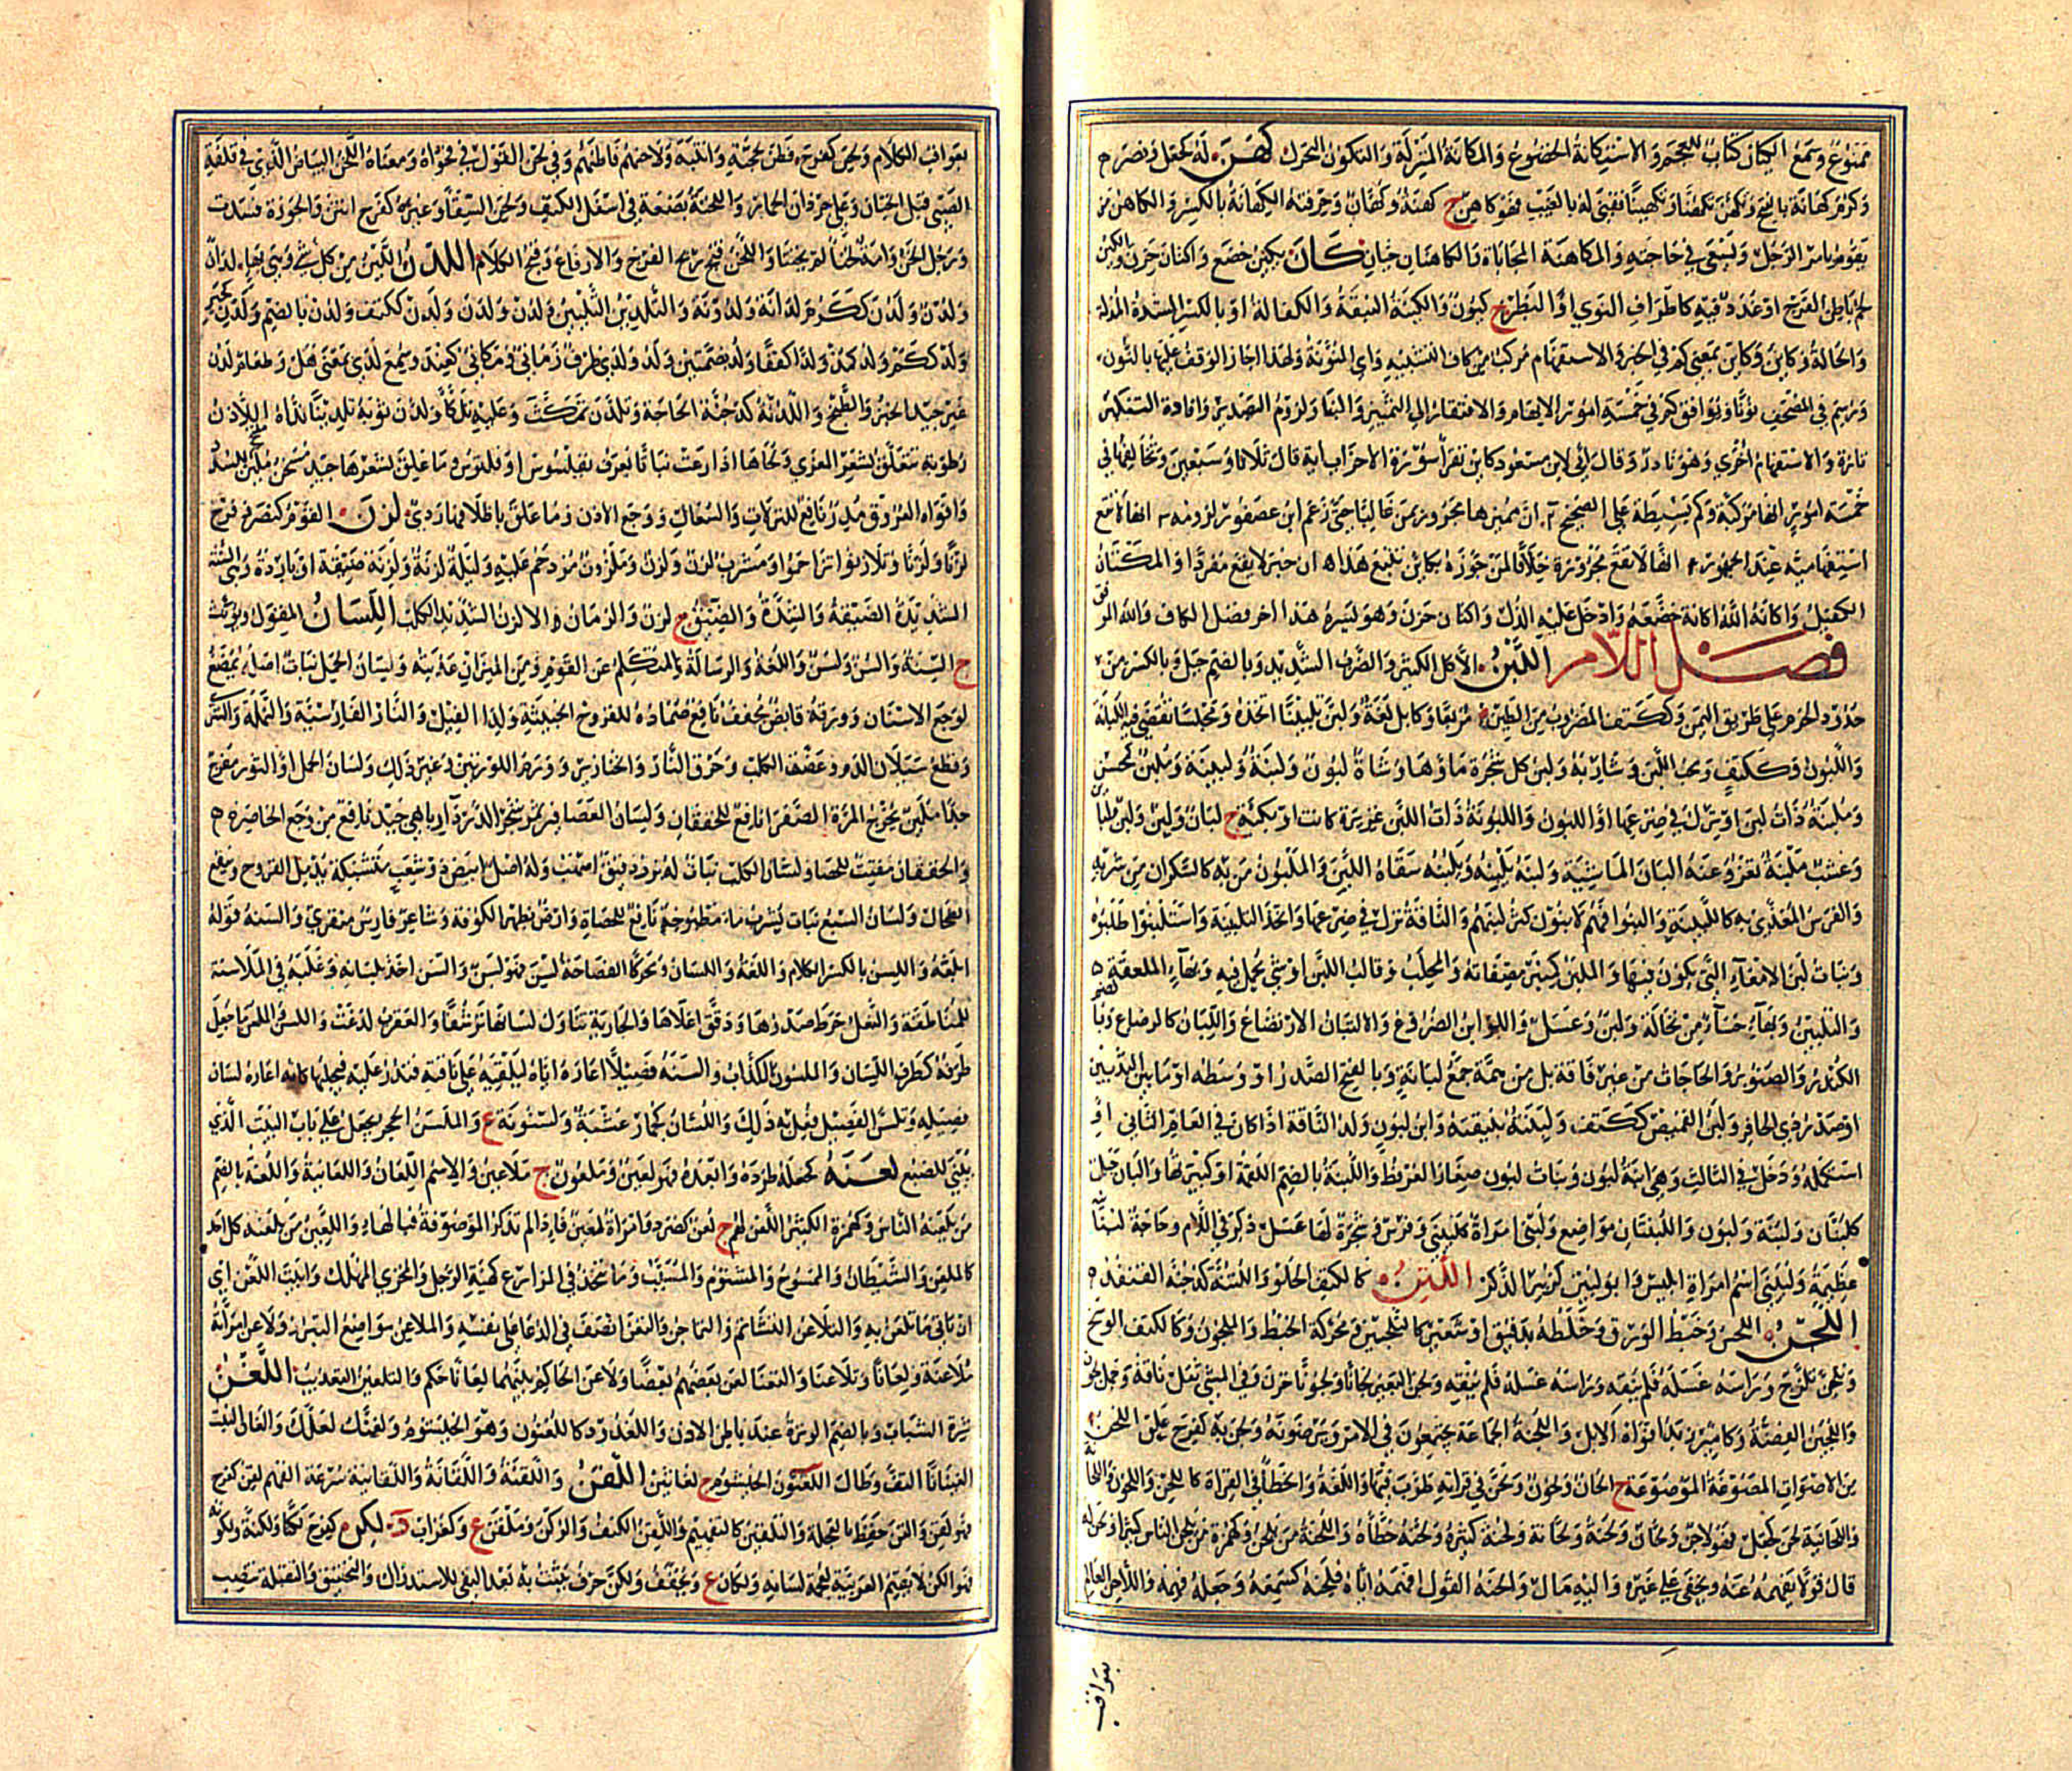 ممنوع وسمع الكيان كتاب للعجم والاستكانة الخضوع والمكانة المنزلة والتكون التحرك كهن له كجعل ونصر
وكرم كهانة بالفتح وتكهن تكهنا وتكهينا قضى له بالغيب فهو كاهن ج كهنة وكهان وحرفته الكهانة بالكسر والكاهن من
يقوم بامر الرجل ويسعى في حاجته والمكاهنة المحاباة والكاهنان حيان كان يكين خضع واكتان حزن والكين
لحم باطن الفرج او غدد فيه كاطراف النوى او البظر ج كيون والكينة النبقة والكفالة او بالكسر الشدة المذلة
والحالة وكاين وكاين بمعنى كم في الخبر والاستفهام مركب من كاف التشبيه واي المنونة ولهذا جاز الوقف عليها بالنون
ورسم في المصحف نونا ويوافق كم في خمسة امور الابهام والافتقار الى التمييز والبنا ولزوم التصدير وافادة التكثير
تارة والاستفهام اخرى وهو نادر وقال ابي لابن مسعود كاين تقرأ سورة الاحزاب اية قال ثلاثا وسبعين ويخالفها في
خمسة امور انها مركبة وكم بسيطة على الصحيح ان مميزها مجرور بمن غالبا حتى زعم ابن عصفور لزومه انها لا تقع
استفهامية عند الجمهور انها لا تقع مجرورة خلافا لمن جوزه بكاين تبيع هذا ان خبرها لا يقع مفردا والمكتان
الكفيل واكانه الله اكانة خضعه وادخل عليه الذل واكتان حزن وهو يسره هذا اخر فصل الكاف والله الموفق
فصل اللام اللبن الاكل الكثير والضرب الشديد وبالضم جبل وبالكسر من
حدود الحرم على طريق اليمن وككتف المضروب من الطين مربعا وكابل لغة ولبن تلبينا اتخذه ومجلسا تقضى فيه اللبانة
واللبون وككتف ومحب اللبن وشاربه ولبن كل شجرة ماؤها وشاة لبون ولبنة ولبينة وملبن كمحسن
وملبنة ذات لبن او ترك في ضرعها او اللبون واللبونة ذات اللبن غزيرة كانت او بكيئة ج لبان ولبن ولبن
وعشب ملبنة تغزر عنه البان الماشية ولبنه يلبنه ويلبنه سقاه اللبن والملبون من به كالسكران من شربه
والفرس المغذى به كاللبين والبنوا فهم لابنون كثر لبنهم والناقة نزل في ضرعها واتخذ التلبينة واستلبنوا طلبوه
وبنات لبن الامعاء التي يكون فيها والملبن كمنبر مصفاته والمحلب وقالب اللبن او شيء يحمل فيه وبهاء الملعقة
والتلبين وبهاء حساء من نخالة ولبن وعسل واللوابن الضروع والالتبان الارتضاع واللبان كالرضاع وبا
الكندر والصنوبر والحاجات من غير فاقة بل من همة جمع لبانة وبالفتح الصدر او وسطه او ما بين الثديين
او صدر ذي الحافر ولبن القميص ككتف ولبنته بنيقته وابن لبون ولد الناقة اذا كان في العام الثاني او
استكمله ودخل في الثالث وهي ابنة لبون وبنات لبون صغار العرفط واللبنة بالضم اللقمة او كبيرتها والبان جبل
كلبنان ولبنة ولبون واللبنتان مواضع ولبنى امراة كلبينى وفرس وشجرة لها عسل ذكر في اللام وحاجة لبنا
عظيمة ولبينى اسم امراة ابليس وابو لبين كزبير الذكر اللتن كالكتف الحلو واللتنة كدجنة القنفذ
اللجن اللحس وخبط الورق وخلطه بدقيق او شعير كالتلجين ومحركة الخبط واللجون وكالكتف الوسخ
وتلجن تلزج وراسه غسله فلم ينقه وراسه غسله فلم ينقه ولجن البعير لجانا ولجونا حرن وفي المشي ثقل ناقة وجمل لجون
واللجين الفضة وكامير زبد افواه الابل واللجنة الجماعة يجتمعون في الامر ويرضونه ولجن به كفرح علق اللحن
من الاصوات المصوغة الموضوعة ج الحان ولحون ولحن في قراته طرب فيها واللغة والخطأ في القراة كاللحن واللحون واللحانة
واللحانية لحن كجعل فهو لاحن ولحان ولحنة ولحانة ولحنة كثيره ولحنه خطأه واللحنة من يلحن وكهمزة من يلحن الناس كثيرا ولحن له
قال قولا يفهمه عنه ويخفى على غيره واليه مال والحنه القول افهمه اياه فلحنه كسمعه وجعله فهمه واللاحن العالم
بعواقب
بعواقب الكلام ولحن كفرح فطن لحجته وانتبه ولاحنهم فاطنهم وفي لحن القول في فحواه ومعناه اللخن البياض الذي في قلفة
الصبي قبل الختان وعلى جرذان الحمار واللخنة بضعة في اسفل الكتف ولخن السقا وغيره كفرح انتن والجوزة فسدت
ورجل الخن وامة لخنا لم يختنا واللخن قبح ريح الفرج والارفاغ وقبح الكلام اللدن اللين من كل شيء وهي بهاء لدان
ولدن ولدن ككرم لدانة ولدونة والتلدين التليين ولدن ولدن ولدن ولدن ككتف ولدن بالضم ولدن كجير
ولد ككم ولد كمذ ولدا كقفا ولد بضمتين ولد ولدى ظرف زماني ومكاني كعند وسمع لدى بمعنى هل وطعام لدن
غير جيد الخبز والطبخ واللدنة كدجنة الحاجة وتلدن تمكث وعليه تلكأ ولدن ثوبه تلدينا نداه اللاذن
رطوبة تتعلق بشعر المعزى ولحاها اذا رعت نباتا يعرف بقلسوس او قلتوس وما علق بشعرها جيد مسخن ملين مفتح للسدد
وافواه العروق مدر نافع للنزلات والسعال ووجع الاذن وما علق باظلافها ردي لزن القوم كنصر وفرح
لزنا ولزنا وتلازنوا تزاحموا ومشرب لزن ولزن وملزون مزدحم عليه وليلة لزنة ولزنة ضيقة او باردة وهي السنة
الشديدة الضيقة والشدة والضيق ج لزن والزمان الالزن الشديد الكلب اللسان المقول ويؤنث
ج السنة والسن ولسن واللغة والرسالة والمتكلم عن القوم ومن الميزان عذبته ولسان الحمل نبات اصله يمضغ
لوجع الاسنان وورقه قابض مجفف نافع ضماده للقروح الخبيثة ولداء الفيل والنار الفارسية والنملة والشرى
وقطع سيلان الدم وعضة الكلب وحرق النار والخنازير وورم اللوزتين وغير ذلك ولسان الحمل او الثور مفرح
جدا ملين يخرج المرة الصفرا نافع للخفقان ولسان العصافير ثمر شجر الدردار باهي جيد نافع من وجع الخاصرة
والخفقان مفتت للحصا ولسان الكلب نبات له بزر دقيق اصهب وله اصل ابيض ذو شعب متشبكة يدمل القروح وينفع
الطحال ولسان السبع نبات يشرب ماء مطبوخه نافع للحصاة وارض بظهر الكوفة وشاعر فارس منقري والسنه قوله
ابلغه واللسن بالكسر الكلام واللغة واللسان ومحركا الفصاحة لسن فهو لسن والسن اخذ بلسانه وغلبه في الملاسنة
للمناطقة والنعل خرط صدرها ودقق اعلاها والجارية تناول لسانها ترشفا والعقرب لدغت واللسن الملسن ما جعل
طرفه كطرف اللسان والملسون الكذاب والسنه فصيلا اعاره اياه ليلقيه على ناقته فتدر عليه فيحلبها كانه اعاره لسان
فصيله وتلسن الفصيل فعل به ذلك واللسان كخمار عشبة ولسنونة ع والملسن الحجر يجعل على باب البيت الذي
يبنى للضبع لعنه كجعله طرده وابعده فهو لعين وملعون ج ملاعين والاسم اللعان واللعانية واللعنة بالضم
من يلعنه الناس وكهمزة الكثير اللعن لهم ج لعن كصرد وامراة لعين فاذا لم تذكر الموصوفة فبالهاء واللعين من يلعنه كل احد
كالملعن والشيطان والممسوخ والمشئوم والمسيب وما يتخذ في المزارع كهيئة الرجل والمخزى المهلك وابيت اللعن اي
ان تاتي ما تلعن به والتلاعن التشاتم والتماجن والتعن انصف في الدعا على نفسه والملاعن مواضع التبرز ولاعن امراته
ملاعنة ولعانا وتلاعنا والتعنا لعن بعضهم بعضا ولاعن الحاكم بينهما لعانا حكم والتلعين التعذيب اللغن
شرة الشباب وبالضم الوترة عند باطن الاذن واللغدود كاللغنون وهو الخيشوم ولغنك لغة لعلك والغان النبت
الغينانا التف وطال اللغنون الخيشوم ج لغانين اللقن واللقنة واللقانة واللقانية سرعة الفهم لقن كفرح
فهو لقن والقن حفظ بالعجلة والتلقين كالتفهيم واللقن الكنف والركن وملقن ع وكغراب د لكن كفرح لكنا ولكنة ولكونة
فهو الكن لا يقيم العربية لعجمة لسانه ولكان ع ويخفف ولكن حرف يثبت به بعد النفي للاستدراك والتحقيق والثقيلة تنصب